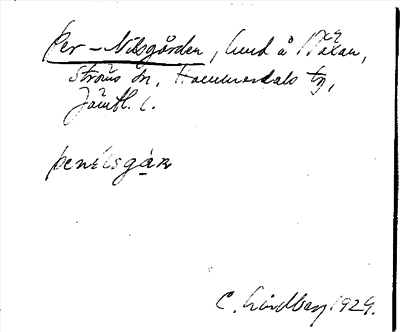 Per-Nilsgården, hmd å Näxan,
Ströms sn, Hammerdals tg,
Jämtl. l.
penilsgáɳ
C. Lindberg 1929.